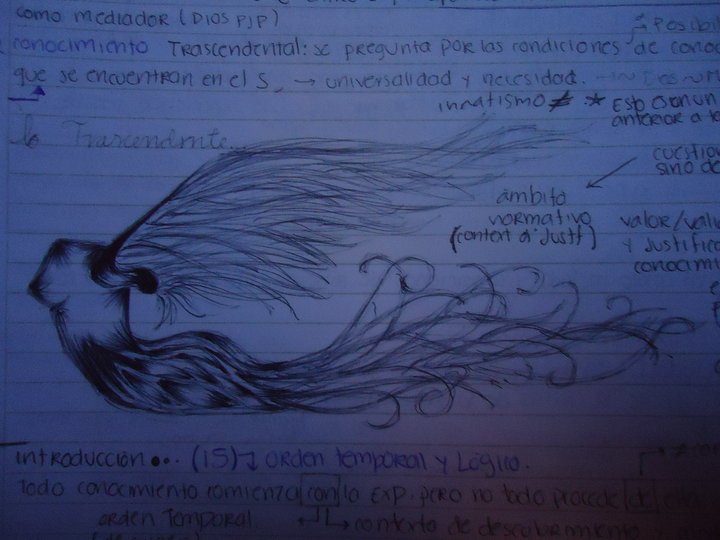 como mediador (DIOS PJP)
Posibi
conocimiento Trascendental: se pregunta por las condiciones de cono
que se encuentran en el S → universalidad y necesidad.
innatismo ≠ * Esto son un
anterior a lo
Trascendente...
cuestio
sino de
ámbito
normativo
(context d' Justf)
valor/vali
y Justific
conocimi
introducción ••• (IS) orden temporal y Lógico.
Todo conocimiento comienza con la Exp. pero no todo procede de ella
orden Temporal
contexto de descubrimiento y